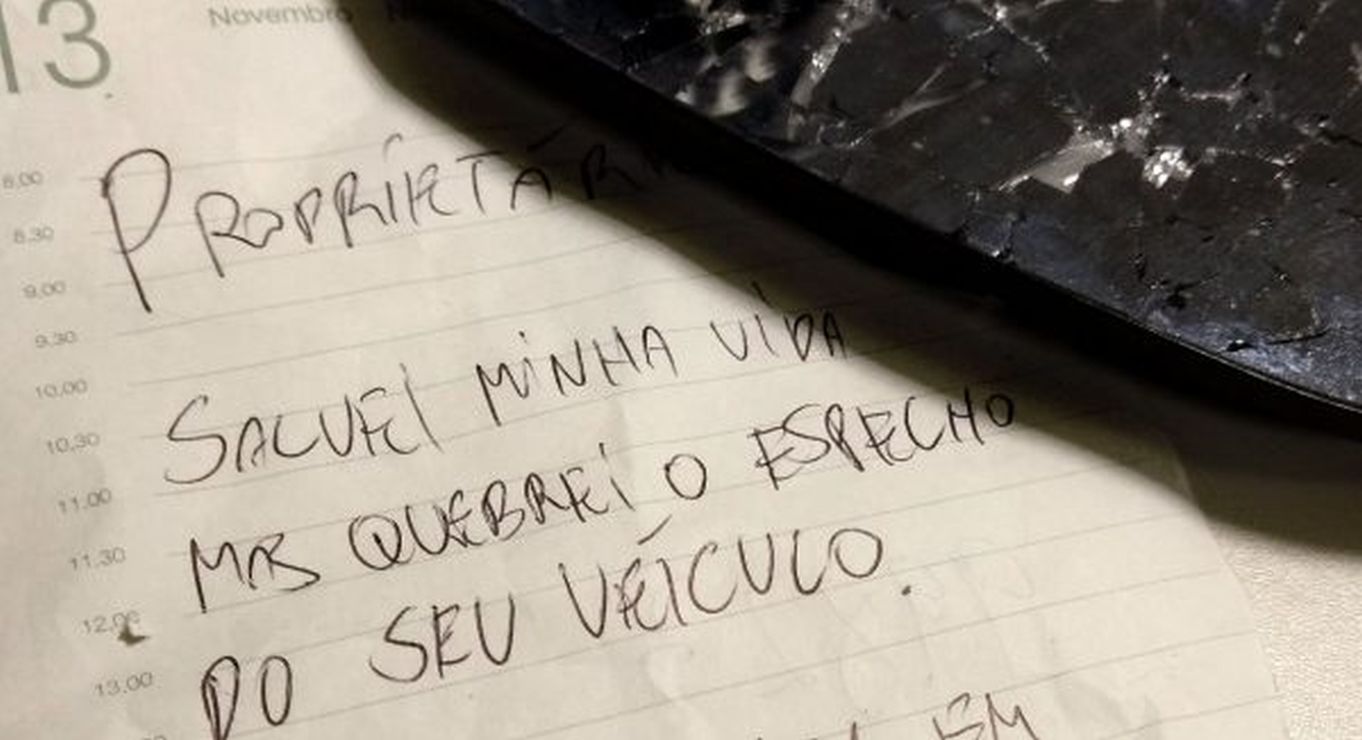 13 Novembro
8,00
PROPRIETÁR
8,30
9,00
9,30
10,00
SALVEI MINHA VIDA
10,30
11,00
MAS QUEBREI O ESPECHO
11,30
12,00
DO SEU VEÍCULO.
13,00
EM